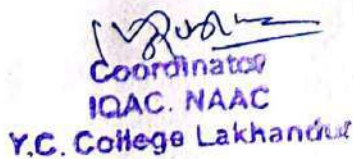 Coordinator
IQAC. NAAC
Y.C. College Lakhandur